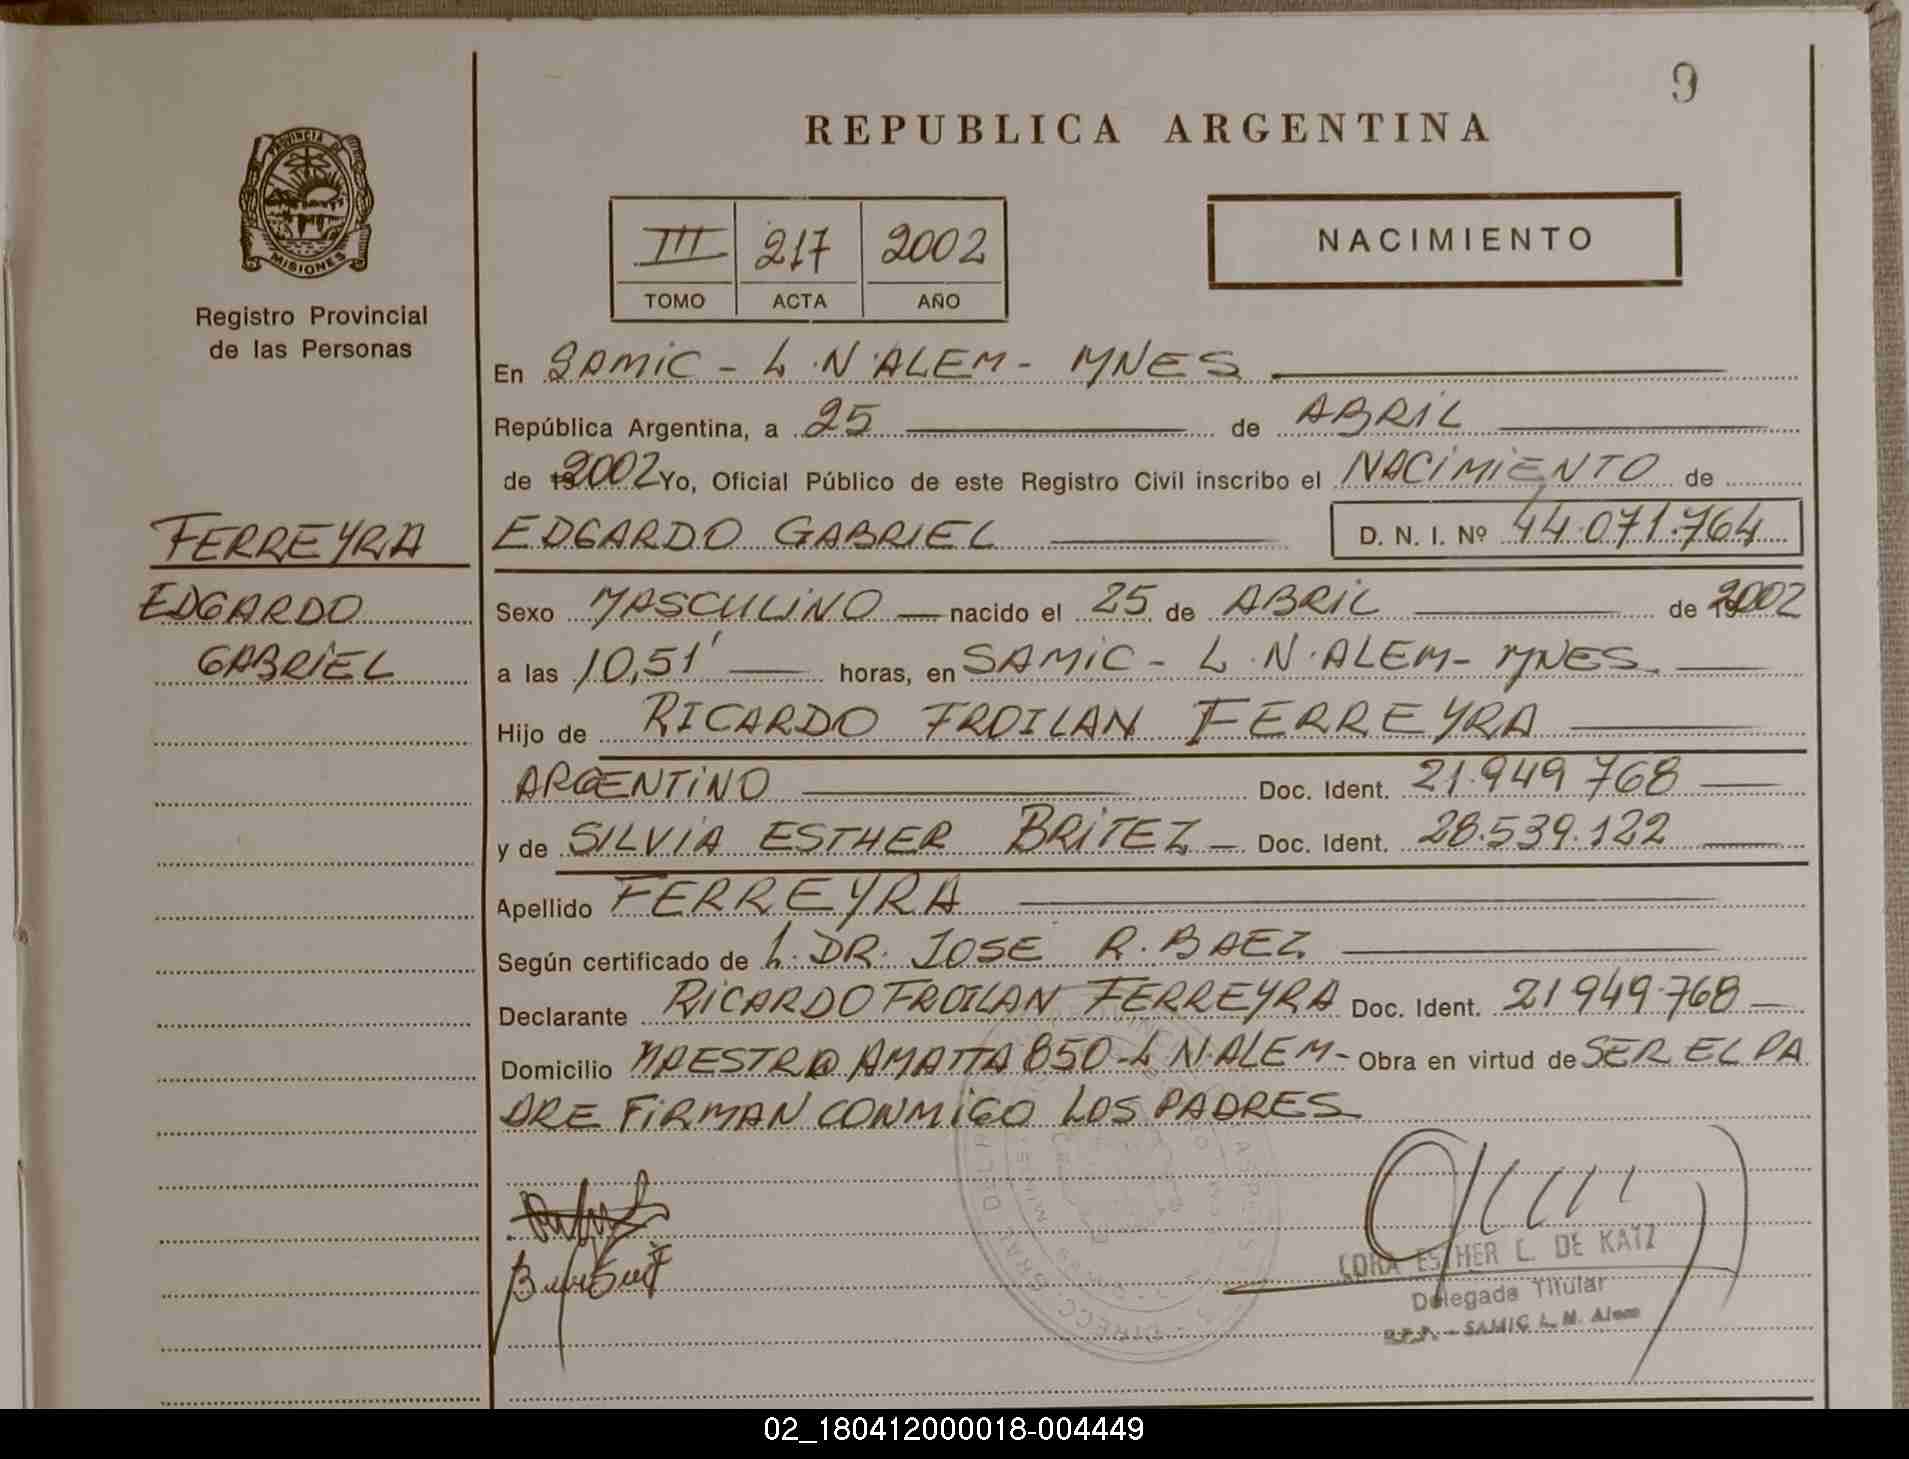 9
REPUBLICA ARGENTINA
PROVINCIA DE
MISIONES
Registro Provincial
de las Personas
III 217 2002
TOMO ACTA AÑO
NACIMIENTO
En SAMIC - L.N.ALEM - MNES
República Argentina, a 25 de ABRIL
de 19 2002 Yo, Oficial Público de este Registro Civil inscribo el NACIMIENTO de
FERREYRA
EDGARDO
GABRIEL
EDGARDO GABRIEL D. N. I. Nº 44.071.764
Sexo MASCULINO nacido el 25 de ABRIL de 19 2002
a las 10,51' horas, en SAMIC - L.N.ALEM - MNES.
Hijo de RICARDO FROILAN FERREYRA
ARGENTINO Doc. Ident. 21.949.768
y de SILVIA ESTHER BRITEZ Doc. Ident. 28.539.122
Apellido FERREYRA
Según certificado de L. DR. JOSE R. BAEZ
Declarante RICARDO FROILAN FERREYRA Doc. Ident. 21 949.768
Domicilio MAESTRO AMATTA 850 - L.N.ALEM - Obra en virtud de SER EL PA
DRE FIRMAN CONMIGO LOS PADRES
ESTHER L. DE KATZ
Delegada Titular
R.P.P. - SAMIC L. N. Alem
02_180412000018-004449